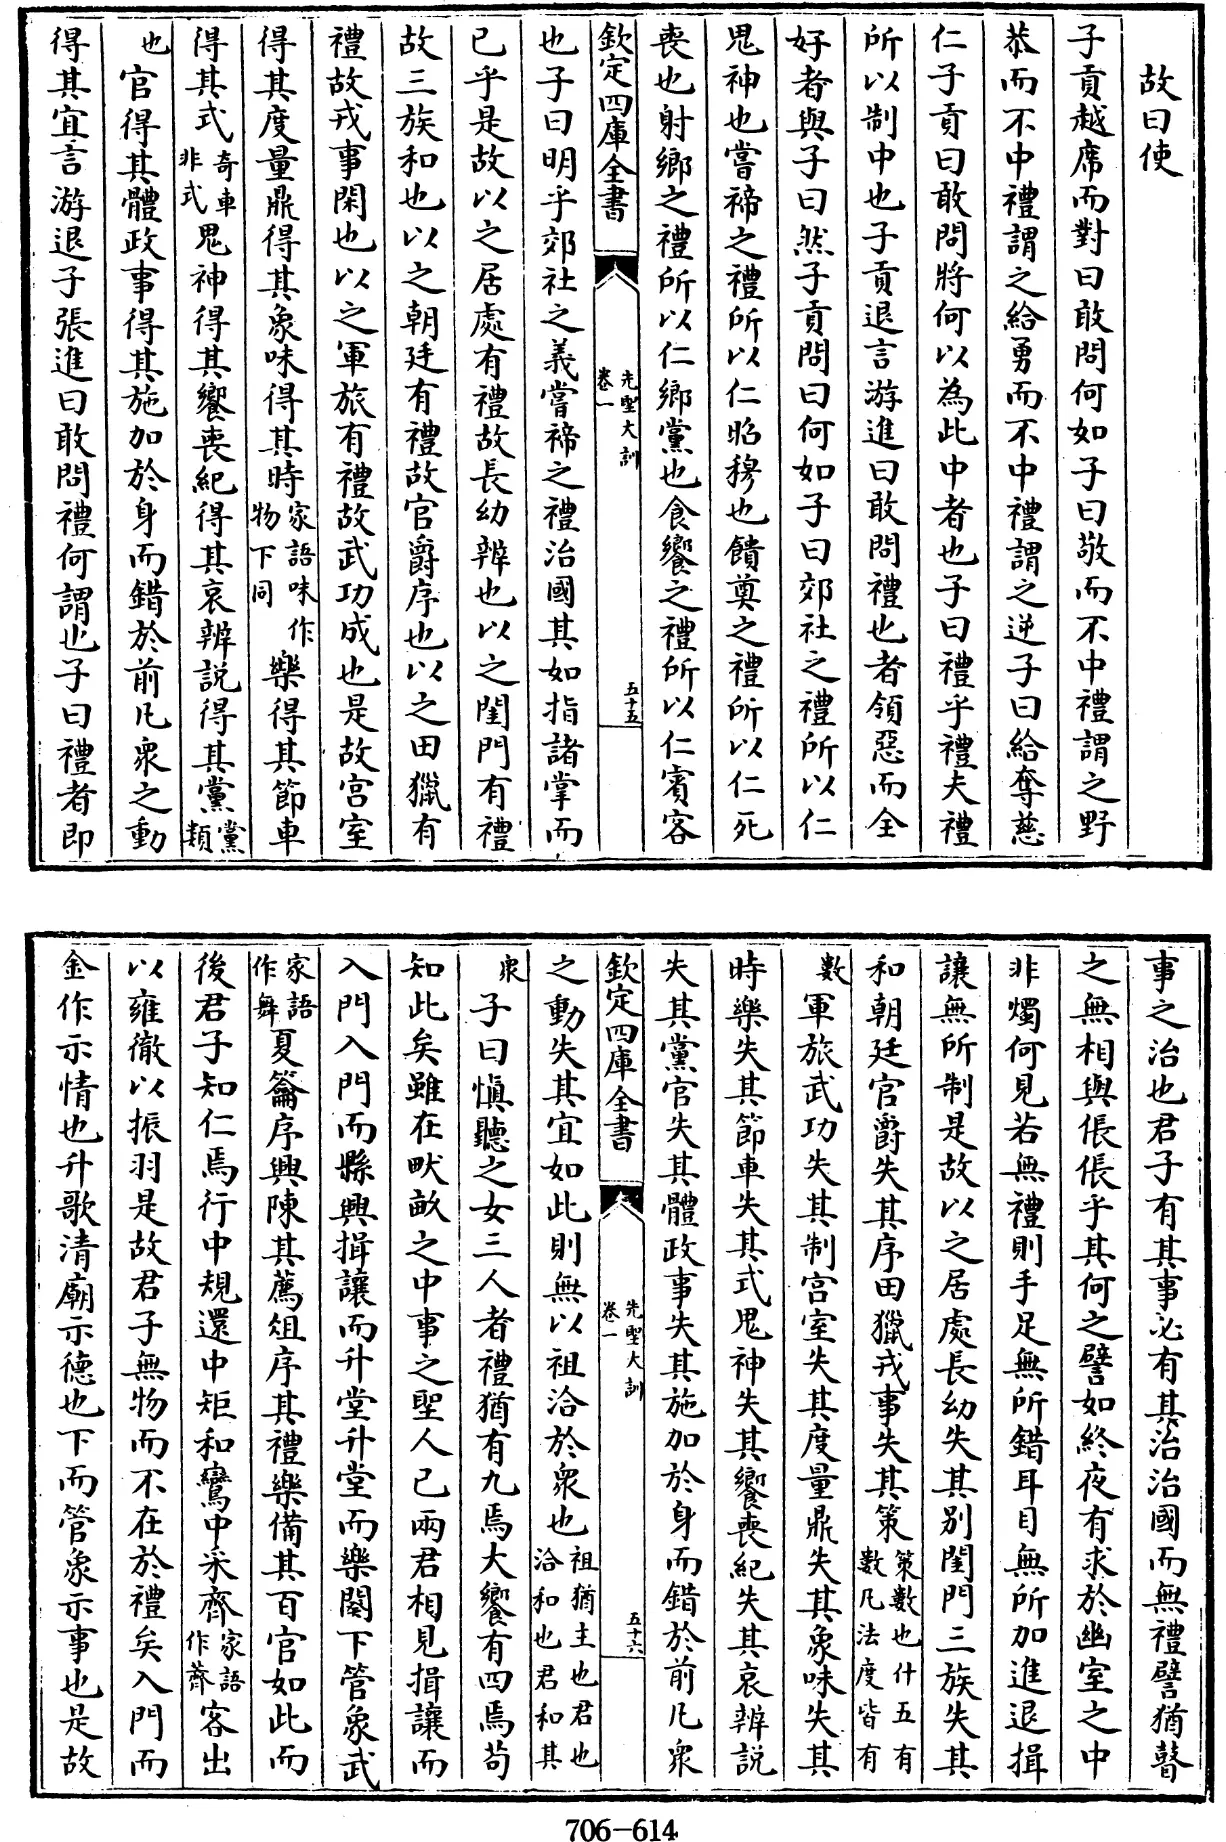 故曰使
子貢越席而對曰敢問何如子曰敬而不中禮謂之野
恭而不中禮謂之給勇而不中禮謂之逆子曰給奪慈
仁子貢曰敢問將何以為此中者也子曰禮乎禮夫禮
所以制中也子貢退言游進曰敢問禮也者領惡而全
好者與子曰然子貢問曰何如子曰郊社之禮所以仁
鬼神也嘗禘之禮所以仁昭穆也饋奠之禮所以仁死
喪也射鄉之禮所以仁鄉黨也食饗之禮所以仁賓客
欽定四庫全書 先聖大訓 卷一 五十五
也子曰明乎郊社之義嘗禘之禮治國其如指諸掌而
已乎是故以之居處有禮故長幼辨也以之閨門有禮
故三族和也以之朝廷有禮故官爵序也以之田獵有
禮故戎事閑也以之軍旅有禮故武功成也是故宫室
得其度量鼎得其象味得其時家語味作物下同樂得其節車
得其式奇車非式鬼神得其饗喪紀得其哀辨説得其黨黨類
也官得其體政事得其施加於身而錯於前凡衆之動
得其宜言游退子張進曰敢問禮何謂也子曰禮者即
事之治也君子有其事必有其治治國而無禮譬猶瞽
之無相與倀倀乎其何之譬如終夜有求於幽室之中
非燭何見若無禮則手足無所錯耳目無所加進退揖
讓無所制是故以之居處長幼失其別閨門三族失其
和朝廷官爵失其序田獵戎事失其策策數也什五有數凡法度皆有
數軍旅武功失其制宫室失其度量鼎失其象味失其
時樂失其節車失其式鬼神失其饗喪紀失其哀辨説
失其黨官失其體政事失其施加於身而錯於前凡衆
欽定四庫全書 先聖大訓 卷一 五十六
之動失其宜如此則無以祖洽於衆也祖猶主也君也洽和也君和其
衆子曰慎聽之女三人者禮猶有九焉大饗有四焉苟
知此矣雖在畎畝之中事之聖人已兩君相見揖讓而
入門入門而縣興揖讓而升堂升堂而樂闋下管象武
家語作舞夏籥序興陳其薦俎序其禮樂備其百官如此而
後君子知仁焉行中規還中矩和鸞中采齊家語作薺客出
以雍徹以振羽是故君子無物而不在於禮矣入門而
金作示情也升歌清廟示德也下而管象示事也是故
706-614